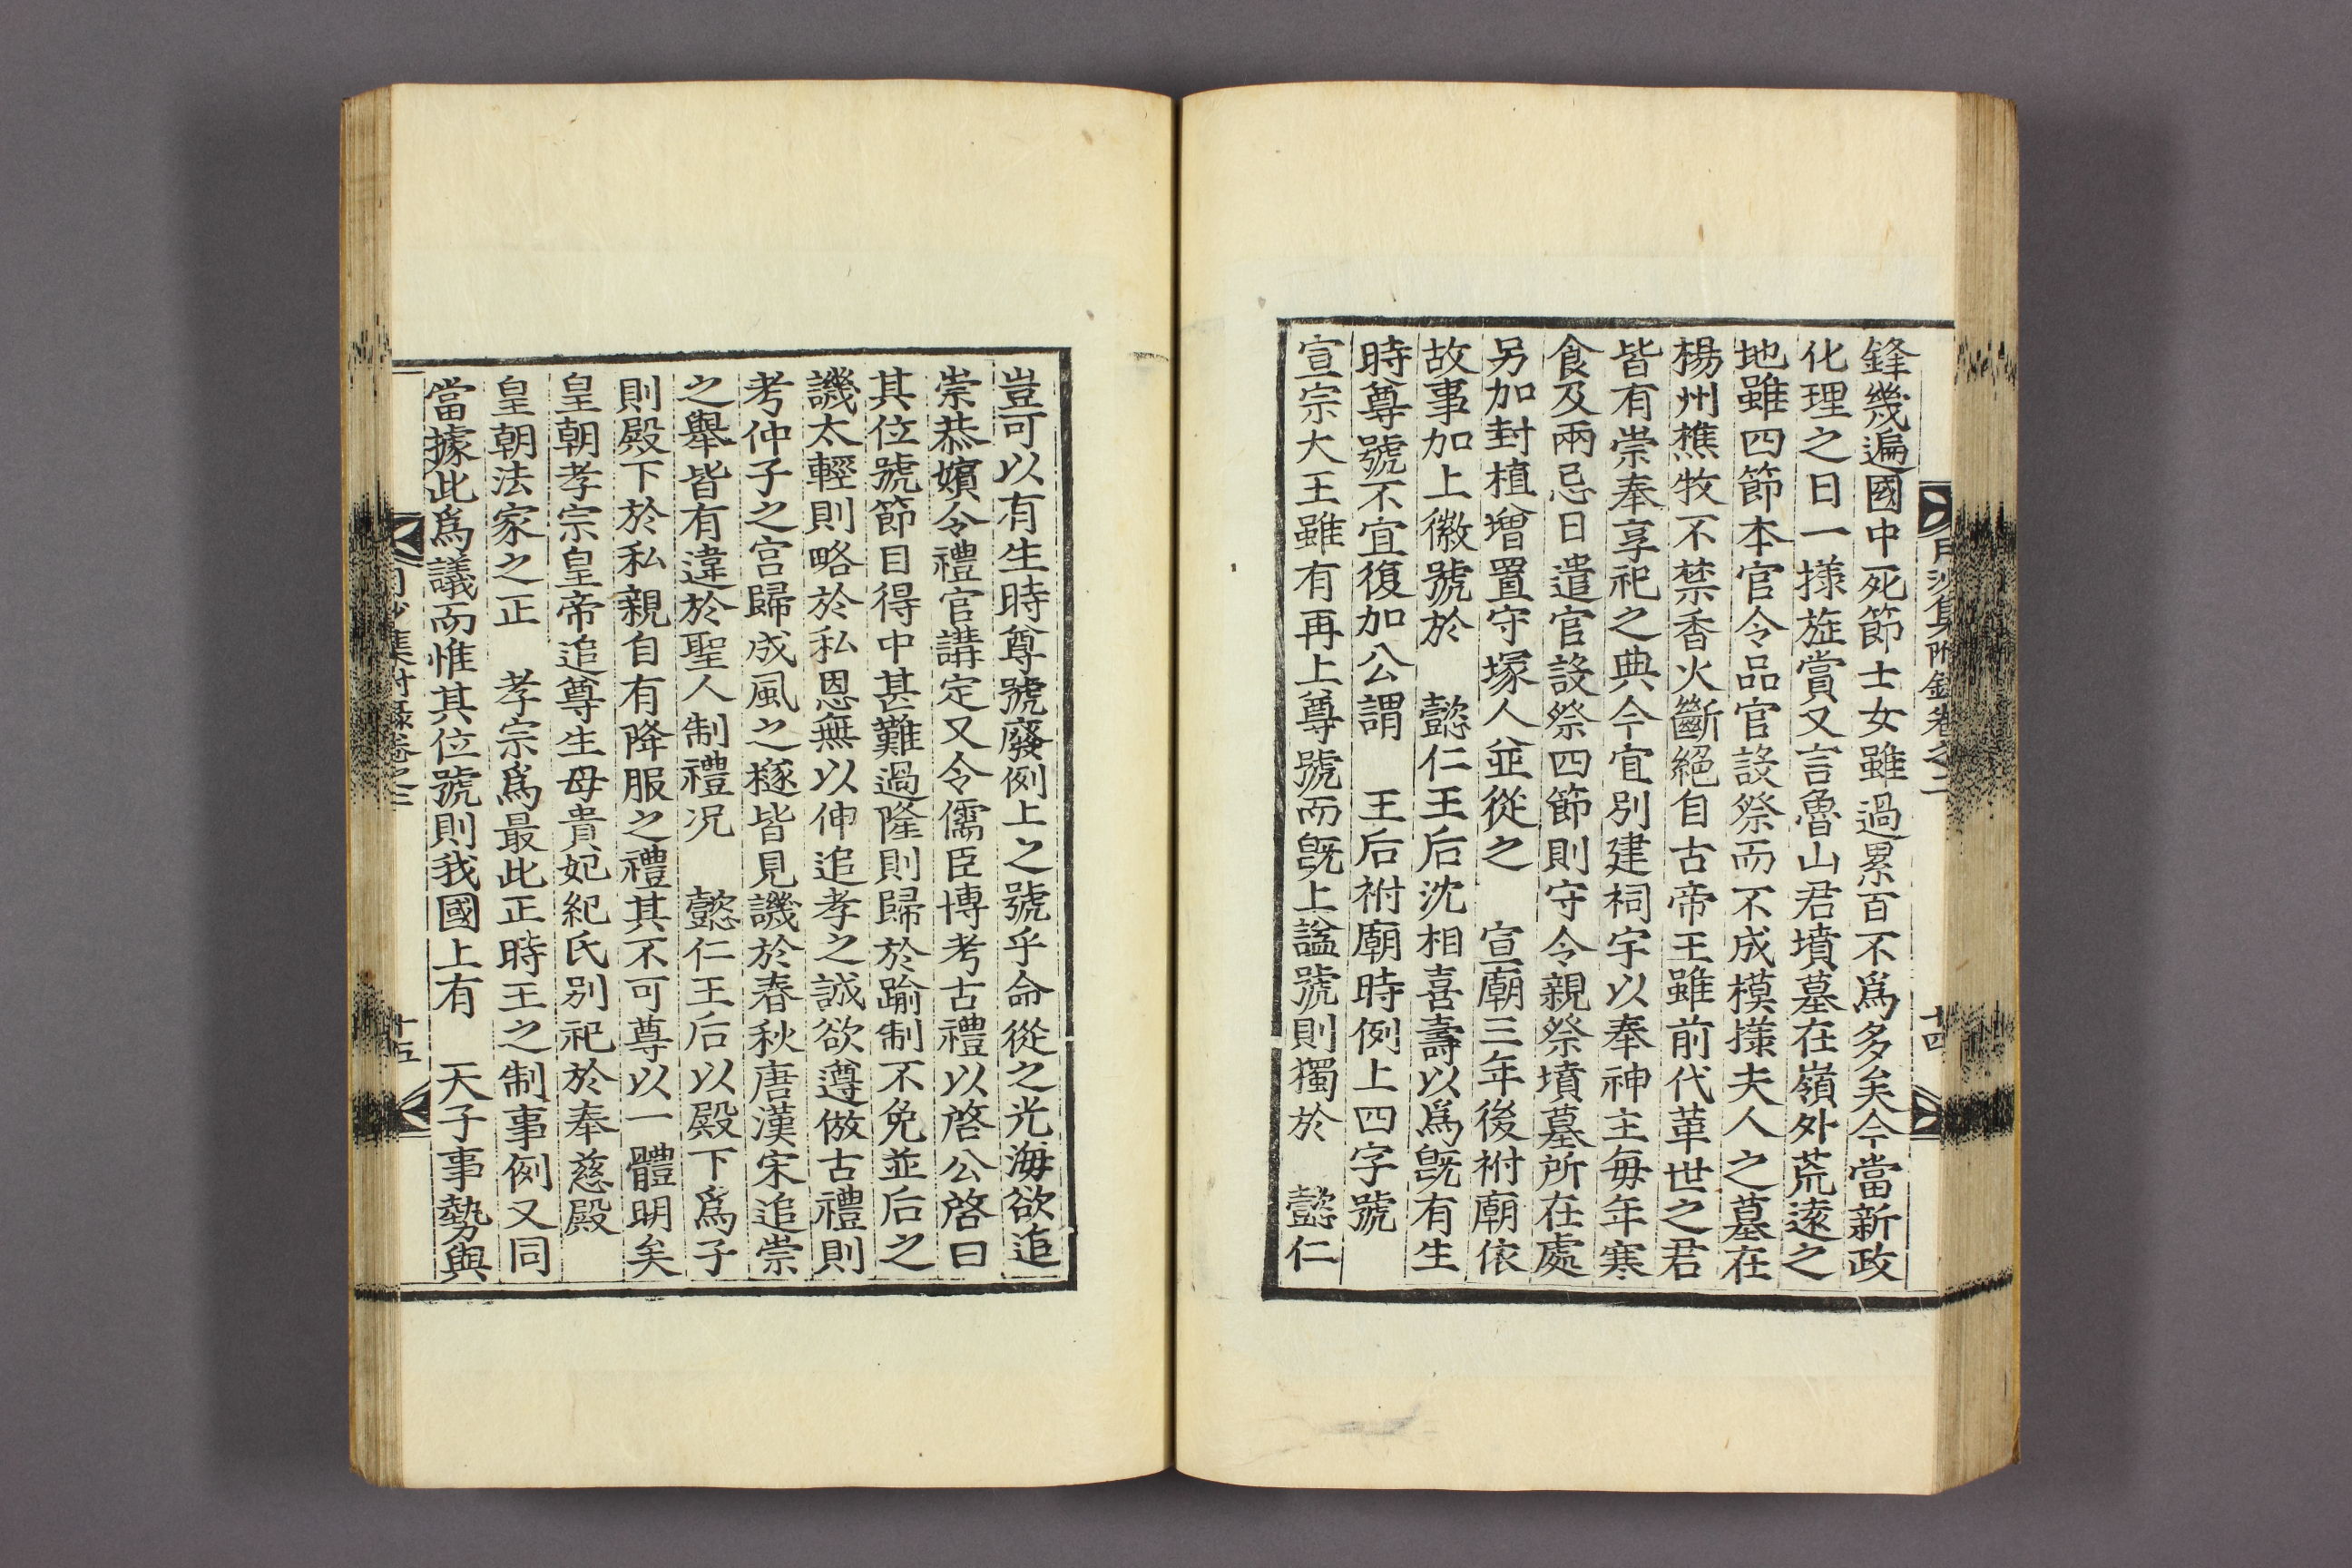 月沙集附錄卷之二 十四
鋒幾遍國中死節士女雖過累百不爲多矣今當新政
化理之日一㨾旌賞又言魯山君墳墓在嶺外荒遠之
地雖四節本官令品官設祭而不成模㨾夫人之墓在
楊州樵牧不禁香火斷絕自古帝王雖前代革世之君
皆有崇奉享祀之典今宜別建祠宇以奉神主每年寒
食及兩忌日遣官設祭四節則守令親祭墳墓所在處
另加封植增置守塚人並從之 宣廟三年後祔廟依
故事加上徽號於 懿仁王后沈相喜壽以爲旣有生
時尊號不宜復加公謂 王后祔廟時例上四字號
宣宗大王雖有再上尊號而旣上謚號則獨於 懿仁
豈可以有生時尊號廢例上之號乎命從之光海欲追
崇恭嬪令禮官講定又令儒臣博考古禮以啓公啓曰
其位號節目得中甚難過隆則歸於踰制不免並后之
譏太輕則略於私恩無以伸追孝之誠欲遵倣古禮則
考仲子之宮歸成風之襚皆見譏於春秋唐漢宋追崇
之舉皆有違於聖人制禮况 懿仁王后以殿下爲子
則殿下於私親自有降服之禮其不可尊以一體明矣
皇朝孝宗皇帝追尊生母貴妃紀氏別祀於奉慈殿
皇朝法家之正 孝宗爲最此正時王之制事例又同
當據此爲議而惟其位號則我國上有 天子事勢與
月沙集附錄卷之二 十五